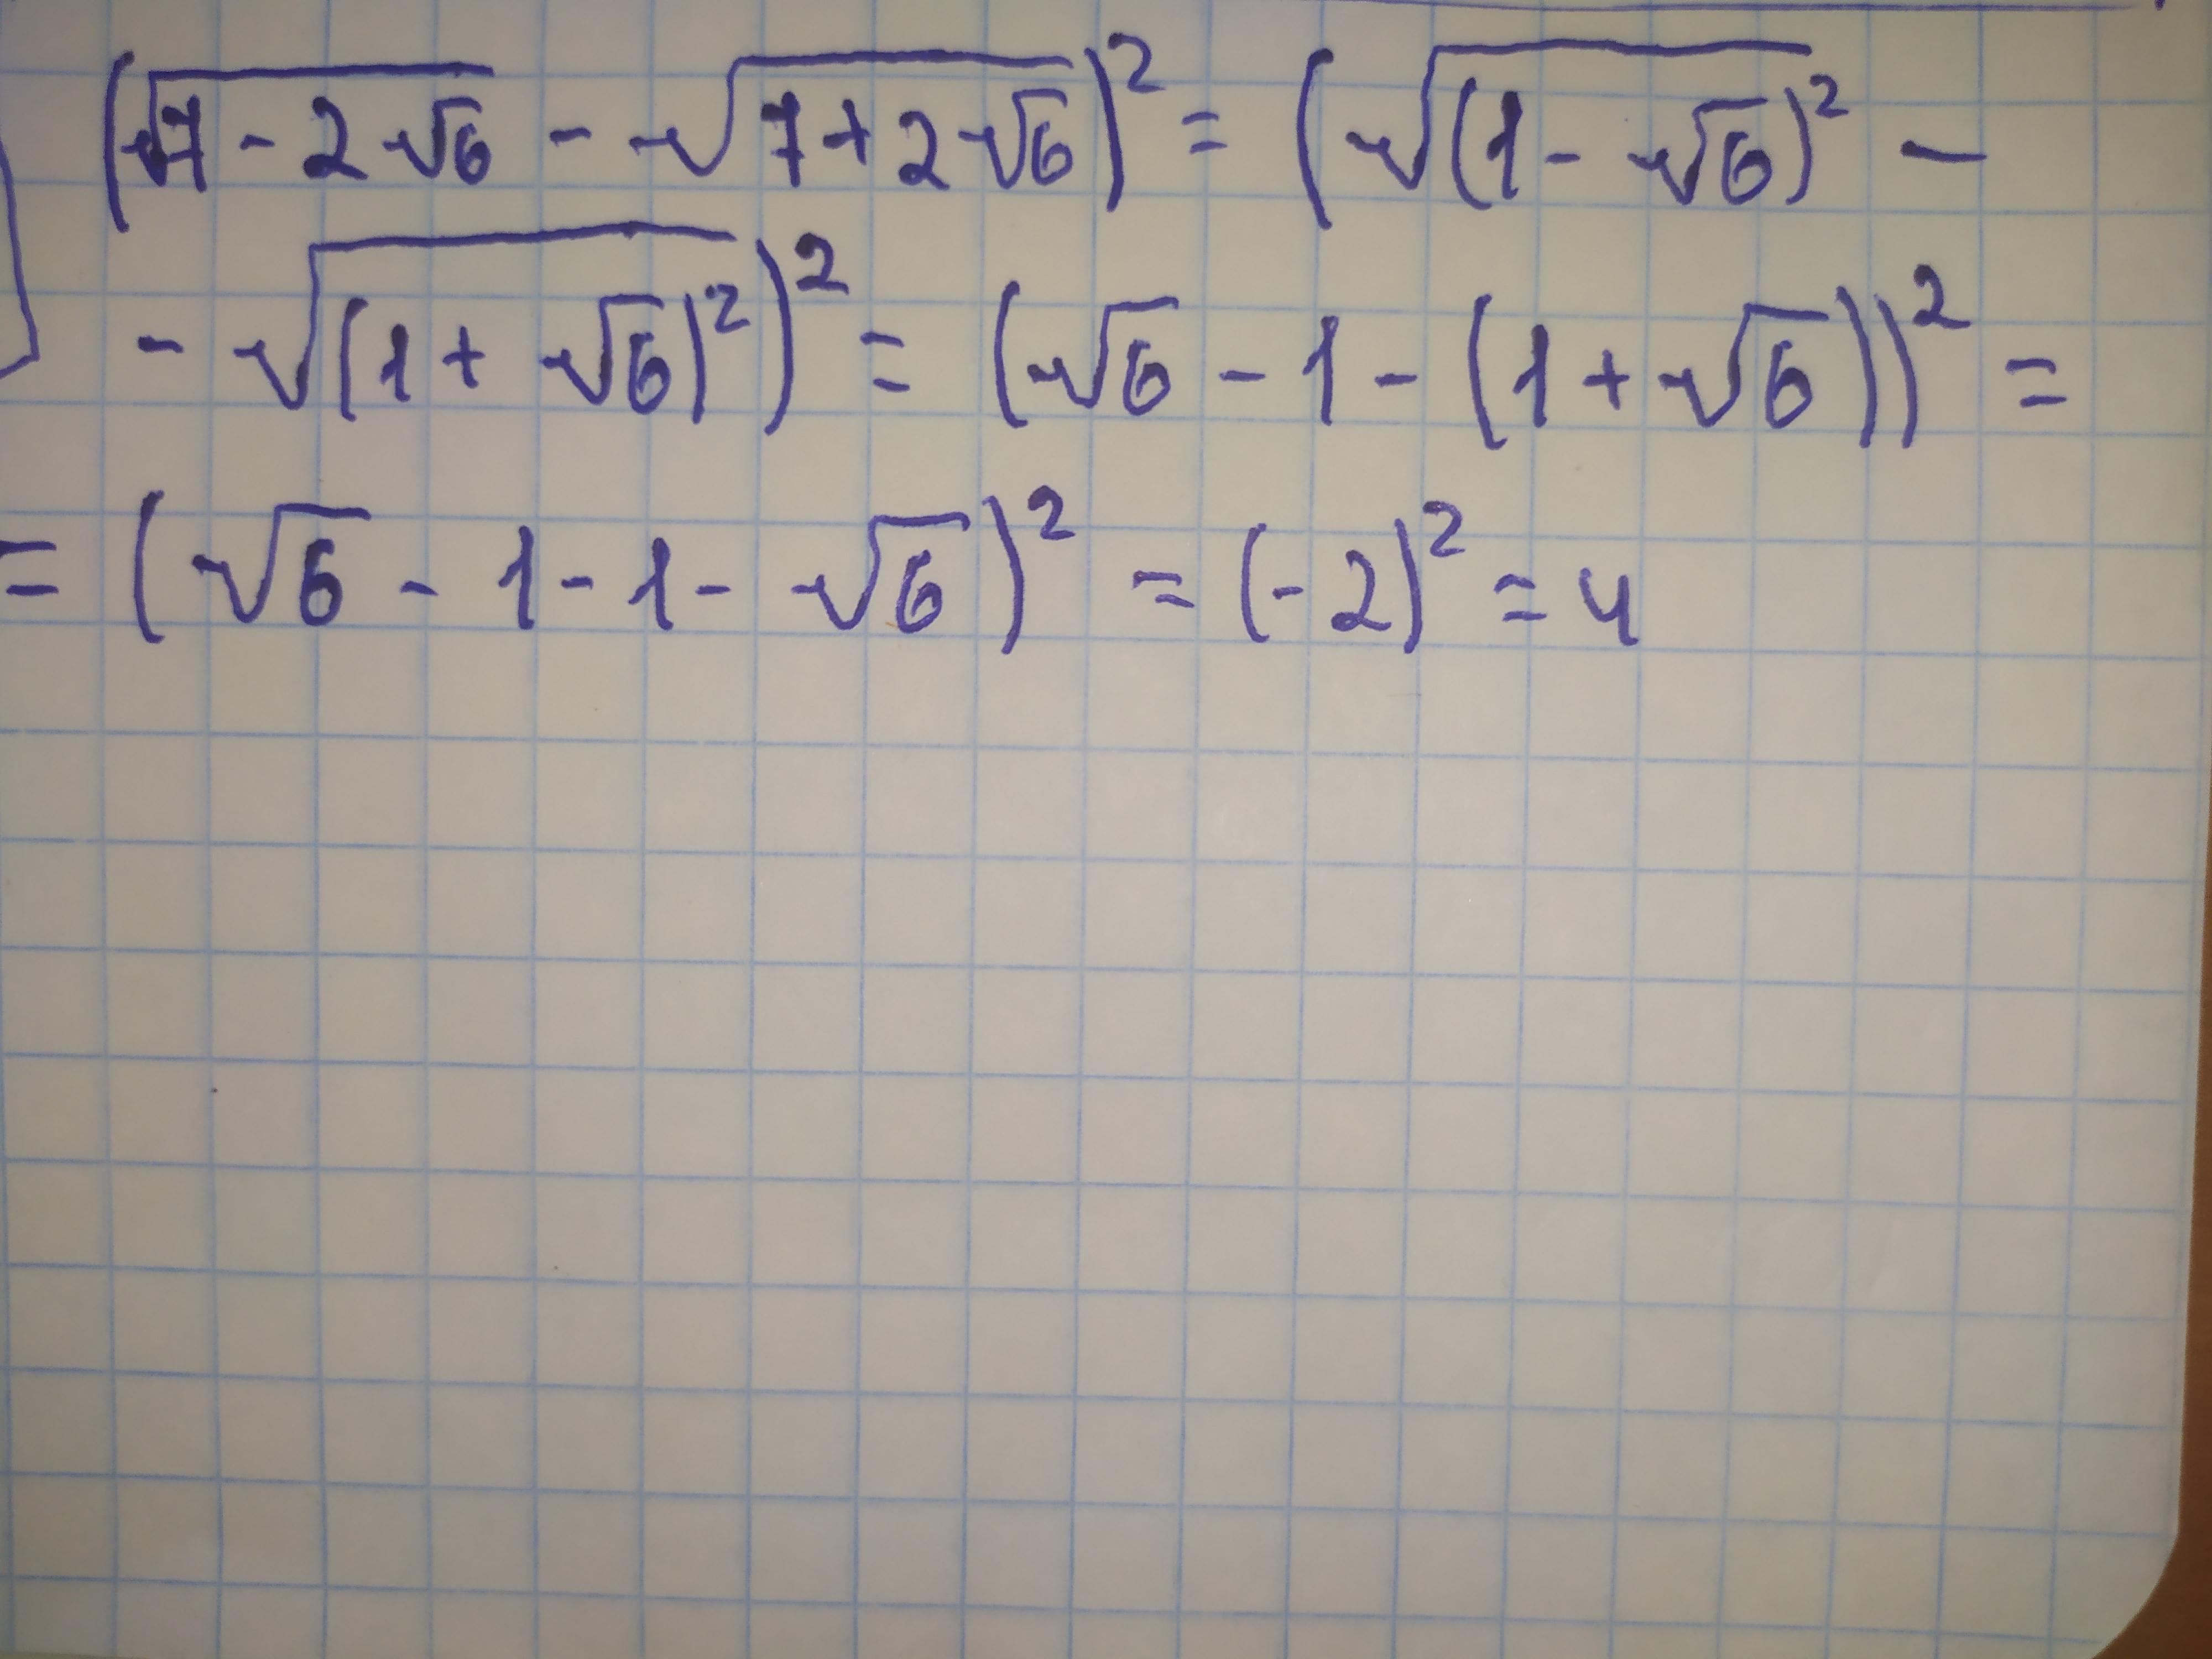 (√(7 - 2√6) - √(7 + 2√6))² = (√((1 - √6)²) -
- √((1 + √6)²))² = (√6 - 1 - (1 + √6))² =
= (√6 - 1 - 1 - √6)² = (-2)² = 4